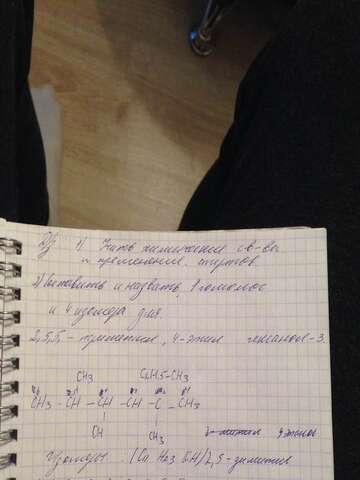 Д/з 1) Учить химические св-ва
и применение спиртов.
2) Составить и назвать 1 гомолог
и 4 изомера для
2,5,5, - триметил, 4-этил гексанола-3.
CH3 C2H5-CH3
CH3 - CH - CH - CH - C - CH3
OH CH3
Изомеры 2,5-диметил